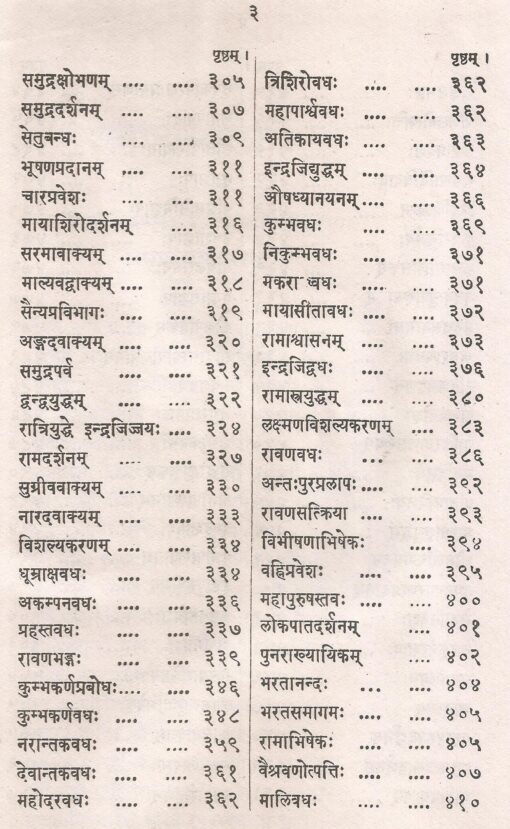 ३
पृष्ठम् ।
समुद्रक्षोभणम् .... .... ३०५
समुद्रदर्शनम् .... .... ३०७
सेतुबन्धः .... .... ३०९
भूषणप्रदानम् .... .... ३११
चारप्रवेशः .... .... ३११
मायाशिरोदर्शनम् .... ३१६
सरमावाक्यम् .... .... ३१७
माल्यवद्वाक्यम् .... .... ३१८
सैन्यप्रविभागः .... .... ३१९
अङ्गदवाक्यम् .... .... ३२०
समुद्रपर्व .... .... ३२१
द्वन्द्वयुद्धम् .... .... ३२२
रात्रियुद्धे इन्द्रजिज्जयः .... ३२४
रामदर्शनम् .... .... ३२७
सुग्रीववाक्यम् .... .... ३३०
नारदवाक्यम् .... .... ३३३
विशल्यकरणम् .... .... ३३४
धूम्राक्षवधः .... .... ३३४
अकम्पनवधः .... .... ३३६
प्रहस्तवधः .... .... ३३७
रावणभङ्गः .... .... ३३९
कुम्भकर्णप्रबोधः.... .... ३४६
कुम्भकर्णवधः .... .... ३४८
नरान्तकवधः .... .... ३५९
देवान्तकवधः .... .... ३६१
महोदरवधः .... .... ३६२
पृष्ठम् ।
त्रिशिरोवधः .... .... ३६२
महापार्श्ववधः .... .... ३६२
अतिकायवधः .... .... ३६३
इन्द्रजिद्युद्धम् .... .... ३६४
औषध्यानयनम् .... .... ३६६
कुम्भवधः .... .... ३६९
निकुम्भवधः .... .... ३७१
.... .... ३७१
मायासीतावधः .... .... ३७२
रामाश्वासनम् .... .... ३७३
इन्द्रजिद्वधः .... .... ३७६
रामास्त्रयुद्धम् .... .... ३८०
लक्ष्मणविशल्यकरणम् .... ३८३
रावणवधः ... .... ३८६
अन्तःपुरप्रलापः .... .... ३९२
रावणसत्क्रिया .... .... ३९३
विभीषणाभिषेकः .... ३९४
वह्निप्रवेशः .... .... ३९५
महापुरुषस्तवः .... .... ४००
लोकपातदर्शनम् .... ४०१
पुनराख्यायिकम् .... ४०२
भरतानन्दः ... .... ४०४
भरतसमागमः .... .... ४०५
रामाभिषेकः .... .... ४०५
वैश्रवणोत्पत्तिः .... .... ४०७
मालिवधः .... .... ४१०